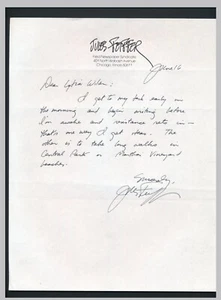 JULES FEIFFER
Field Newspaper Syndicate
401 North Wabash Avenue
Chicago, Illinois 60611
June 16
Dear Lydia Wilen:
I get to my desk early in
the morning and begin writing before
I'm awake and resistance sets in —
that's one way I get ideas. The
other is to take long walks in
Central Park or Martha's Vineyard
beaches.
Sincerely,